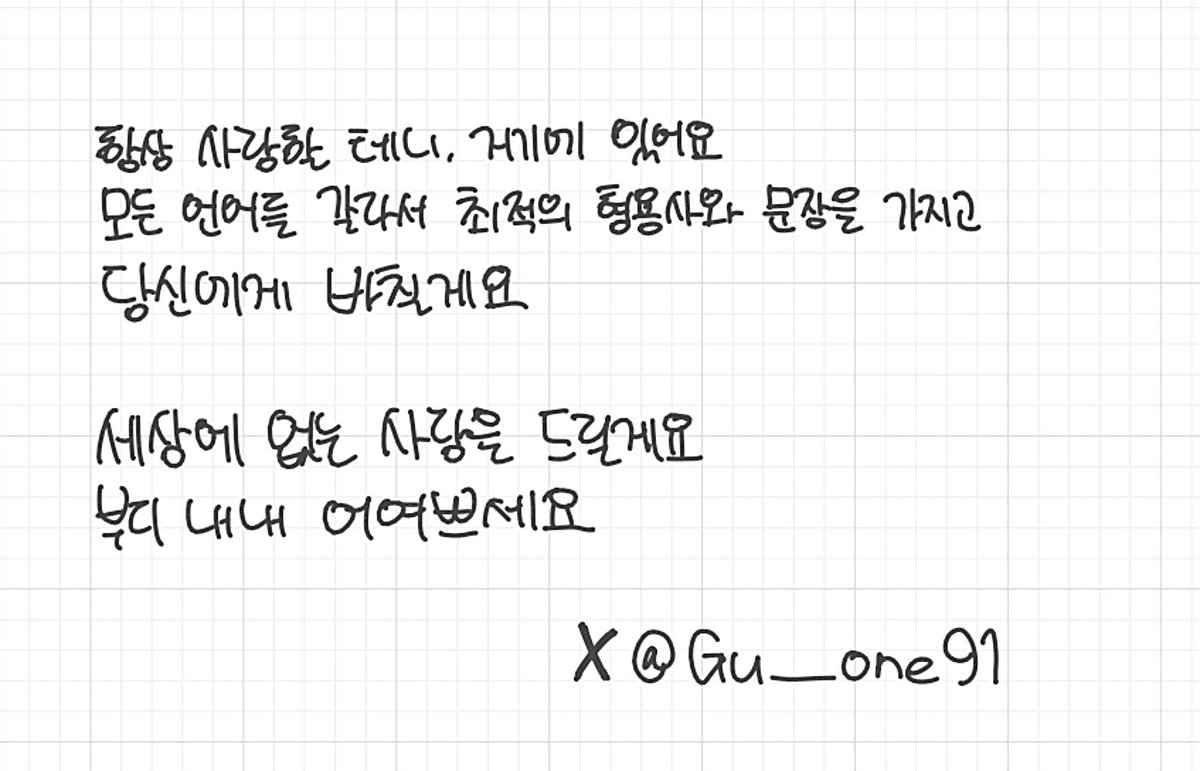 항상 사랑한 테니. 거기에 있어요
모든 언어를 갈라서 최적의 형용사와 문장을 가지고
당신에게 바칠게요
세상에 없는 사랑을 드릴게요
부디 내내 어여쁘세요
X @Gu__one91